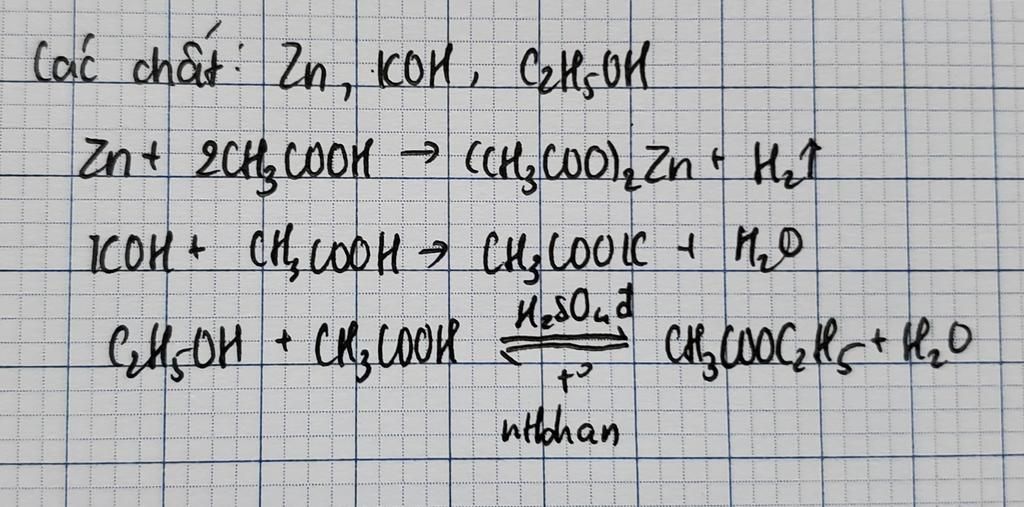 Các chất: Zn, KOH, C2H5OH
Zn + 2CH3COOH → (CH3COO)2Zn + H2↑
KOH + CH3COOH → CH3COOK + H2O
C2H5OH + CH3COOH ⇌ CH3COOC2H5 + H2O
H2SO4 đ
t°